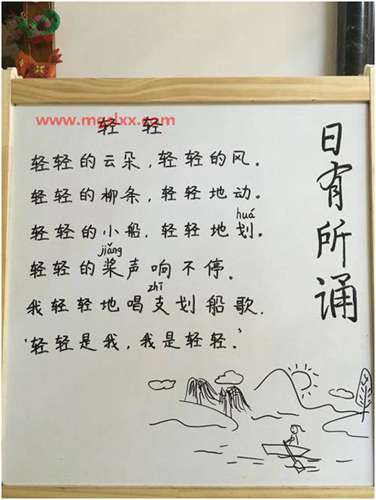 轻 轻
轻轻的云朵，轻轻的风。
轻轻的柳条，轻轻地动。
huá
轻轻的小船，轻轻地划。
jiǎng
轻轻的桨声响不停。
zhī
我轻轻地唱支划船歌.
“轻轻是我，我是轻轻。”
日有所诵